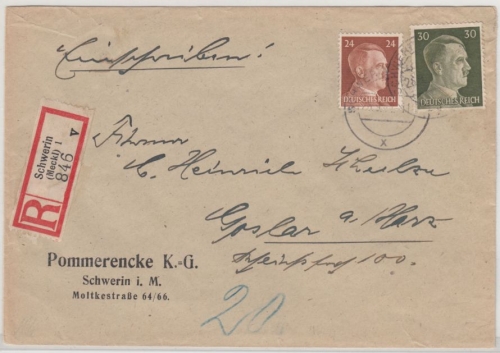 Einschreiben!
24 24
DEUTSCHES REICH
30 30
DEUTSCHES REICH
x
R
Schwerin
(Meckl) 1
846
v
Firma
C. Heinrich
Goslar a. Harz
100.
Pommerencke K.-G.
Schwerin i. M.
Moltkestraße 64/66.
20